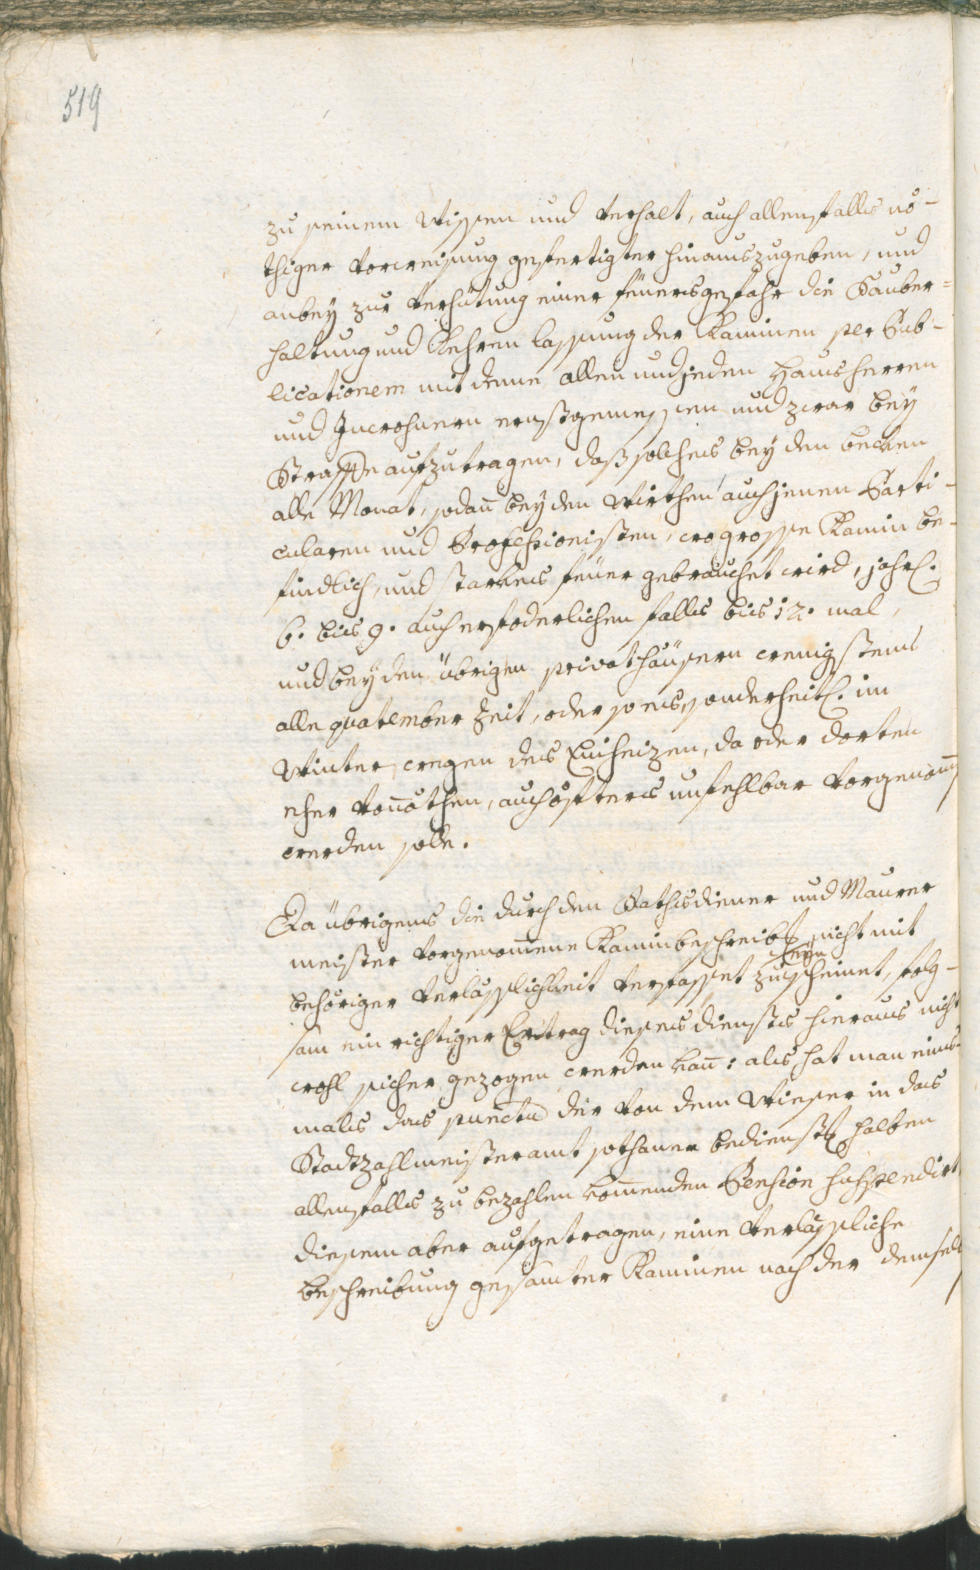 519
zu seinem Wissen und Verhalt, auch allenfalls nö-
thiger Vorweisung gefertigter hinauszugeben, und
anbey zur Verhütung einer feüersgefahr die Sauber=
haltung und Kehren lassung der Kaminen per Pub-
licationem mit deme allen und jeden Hausherren
und Inwohnern ernstgemessen und zwar bey
Straffe aufzutragen, daß solches bey den becken
alle Monat, sodañ bey den Wirthen auch jenen Parti-
cularen und Professionisten, wo grosse Kamin be-
findlich, und starkes feüer gebrauchet wird, jahrl.
6. bis 9. auch erfoderlichen falls bis 12. mal,
und bey den übrigen privathäusern wenigstens
alle quatember Zeit, oder so insonderheitl. im
Winter wegen des Einheizen, da oder dorten
eher voñöthen, auch öffters unfehlbar vorgenom̃
werden solle.
Da übrigens die durch den Rathsdiener und Maurer
meister vorgenom̃ene Kaminbeschreib. nicht mit
behöriger Verlässlichkeit verfasset zu seyn scheinet, folg-
sam ein richtiger Ertrag dieses dienstes hieraus nicht
wohl sicher gezogen werden kañ: als hat man eins-
mals das punctum der von dem Wieser in das
Stadtzahlmeisteramt sothanen bedienst. halben
allenfalls zu bezahlen kom̃enden Pension suspendirt
diesem aber aufgetragen, eine verlässliche
beschreibung gesamter Kaminen nach der demsel